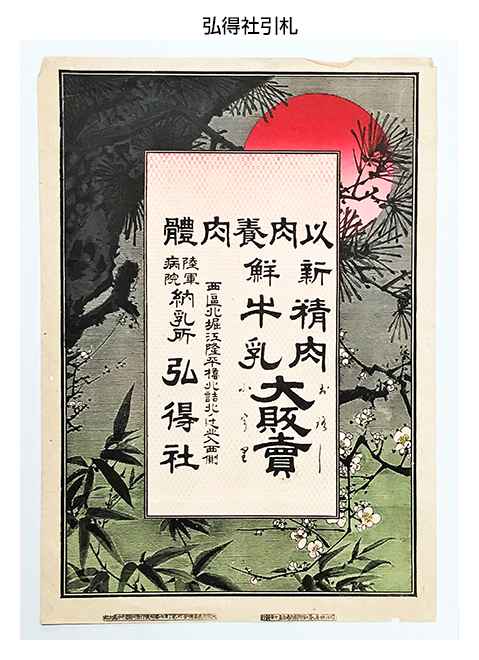 弘得社引札
以肉養肉體
新精肉
鮮牛乳
大販賣
おろし
小うり
西區北堀江隆平橋北詰北西側
陸軍病院納乳所
弘得社